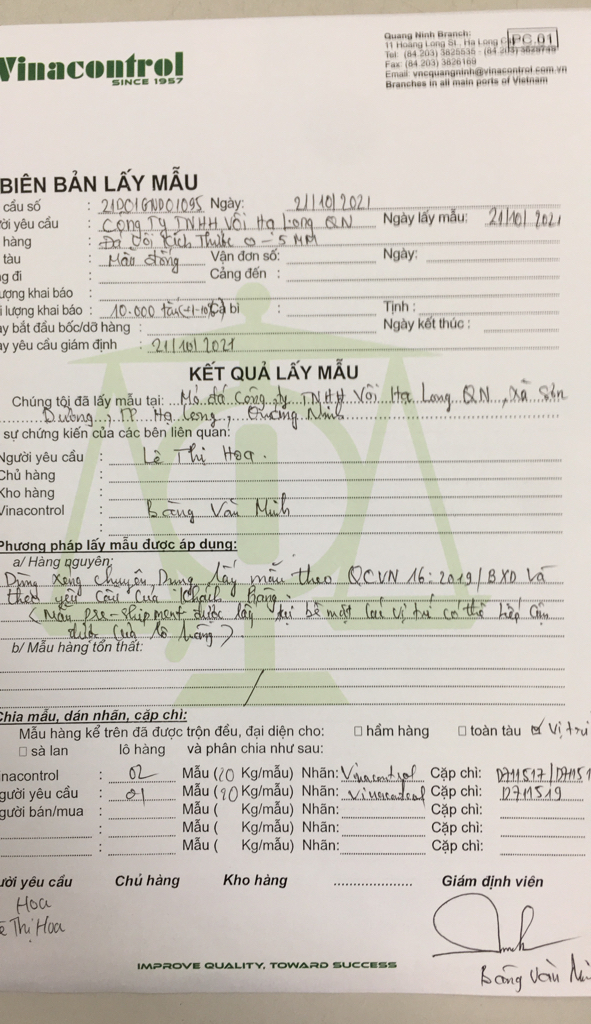 Vinacontrol
SINCE 1957
Quang Ninh Branch:
11 Hoang Long St., Ha Long
PC.01
Tel: (84 203) 3825535 -
Fax: (84 203) 3826169
Email: vncquangninh@vinacontrol.com.vn
Branches in all main ports of Vietnam
BIÊN BẢN LẤY MẪU
cầu số : 21DC1GND01095 Ngày: 21/10/2021
ời yêu cầu : Công Ty TNHH Vôi Hạ Long QN Ngày lấy mẫu: 21/10/2021
hàng : Đá Vôi Kích Thước 0-5 MM
tàu : Mão đống Vận đơn số: Ngày:
g đi : Cảng đến :
ượng khai báo :
i lượng khai báo : 10.000 tấn (+/-10%) bì : Tịnh :
y bắt đầu bốc/dỡ hàng : Ngày kết thúc :
ày yêu cầu giám định : 21/10/2021
KẾT QUẢ LẤY MẪU
Chúng tôi đã lấy mẫu tại: Mỏ đá Công ty TNHH Vôi Hạ Long QN, Xã Sơn
Dương, TP Hạ Long, Quảng Ninh
sự chứng kiến của các bên liên quan:
Người yêu cầu : Lê Thị Hoa.
Chủ hàng :
Kho hàng :
Vinacontrol : Bàng Văn Minh
Phương pháp lấy mẫu được áp dụng:
a/ Hàng nguyên:
Dùng xẻng chuyên Dụng lấy mẫu theo QCVN 16:2019/BXD Và
theo yêu cầu của Khách hàng.
(Mẫu pre-shipment được lấy tại bề mặt các vị trí có thể tiếp cận
được của lô hàng).
b/ Mẫu hàng tổn thất:
Chia mẫu, dán nhãn, cặp chì:
Mẫu hàng kể trên đã được trộn đều, đại diện cho: ☐ hầm hàng ☐ toàn tàu ☑ Vị trí
☐ sà lan lô hàng và phân chia như sau:
inacontrol : 02 Mẫu (20 Kg/mẫu) Nhãn: Vinacontrol Cặp chì: D711517/
gười yêu cầu : 01 Mẫu ( Kg/mẫu) Nhãn: Vinacontrol Cặp chì: D711519
gười bán/mua : Mẫu ( Kg/mẫu) Nhãn: Cặp chì:
: Mẫu ( Kg/mẫu) Nhãn: Cặp chì:
: Mẫu ( Kg/mẫu) Nhãn: Cặp chì:
ười yêu cầu Chủ hàng Kho hàng Giám định viên
Hoa
Thị Hoa
Bàng Văn
IMPROVE QUALITY, TOWARD SUCCESS